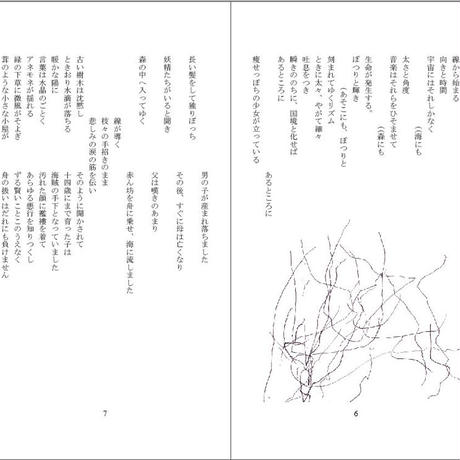 線から始まる
向きと時間
宇宙にはそれしかなく
(海にも
太さと角度
音楽はそれらをひそませて
(森にも
生命が発生する。
ぽつりと輝き
(あそこにも、ぽつりと
刻まれてゆくリズム
ときに太々、やがて細々
吐息をつき
瞬きののちに、国境と化せば
あるところに
痩せっぽちの少女が立っている
あるところに
6
長い髪をして独りぼっち
妖精たちがいると聞き
森の中へ入ってゆく
線が導く
枝々の手招きのまま
悲しみの涙の筋を伝い
古い樹木は沈黙し
ときおり水滴が落ちる
暖かな陽に
言葉は水晶のごとく
アネモネが揺れる
緑の下草に微風がそよぎ
茸のような小さな小屋が
男の子が産まれ落ちました
その後、すぐに母は亡くなり
父は嘆きのあまり
赤ん坊を舟に乗せ、海に流しました
そのように聞かされて
十四歳にまで育った子は
海賊の手下となっていました
汚れた顔に襤褸を着て
あらゆる悪行を知りつくし
ずる賢いことこのうえなく
舟の扱いはだれにも負けません
7